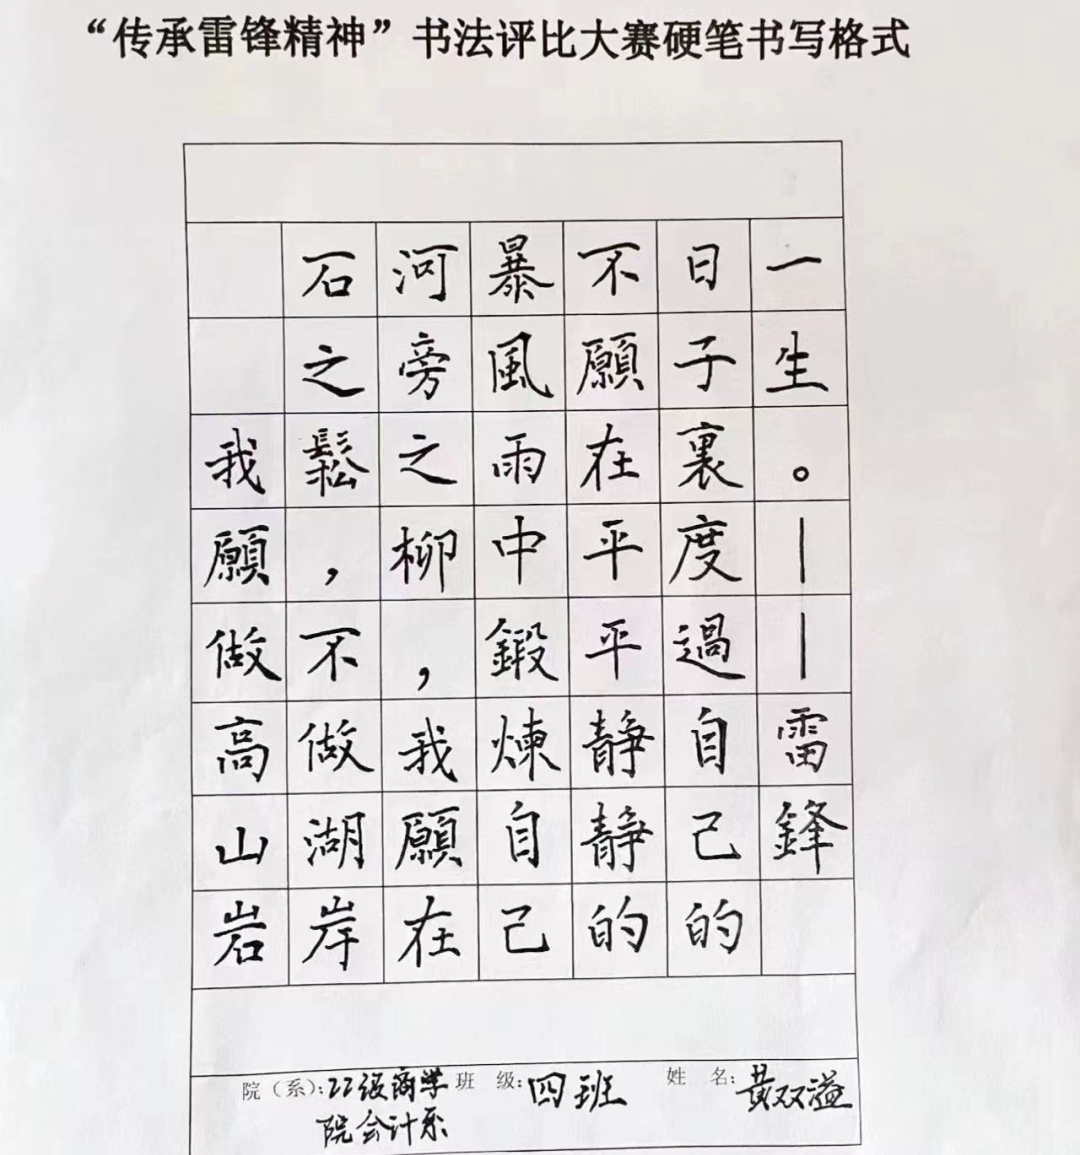 “传承雷锋精神”书法评比大赛硬笔书写格式
我願做高山岩
石之鬆，不做湖岸
河旁之柳，我願在
暴風雨中鍛煉自己
不願在平平靜靜的
日子裏度過自己的
一生。——雷鋒
院（系）：22级商学院会计系 班 级：四班 姓 名：黄双溢